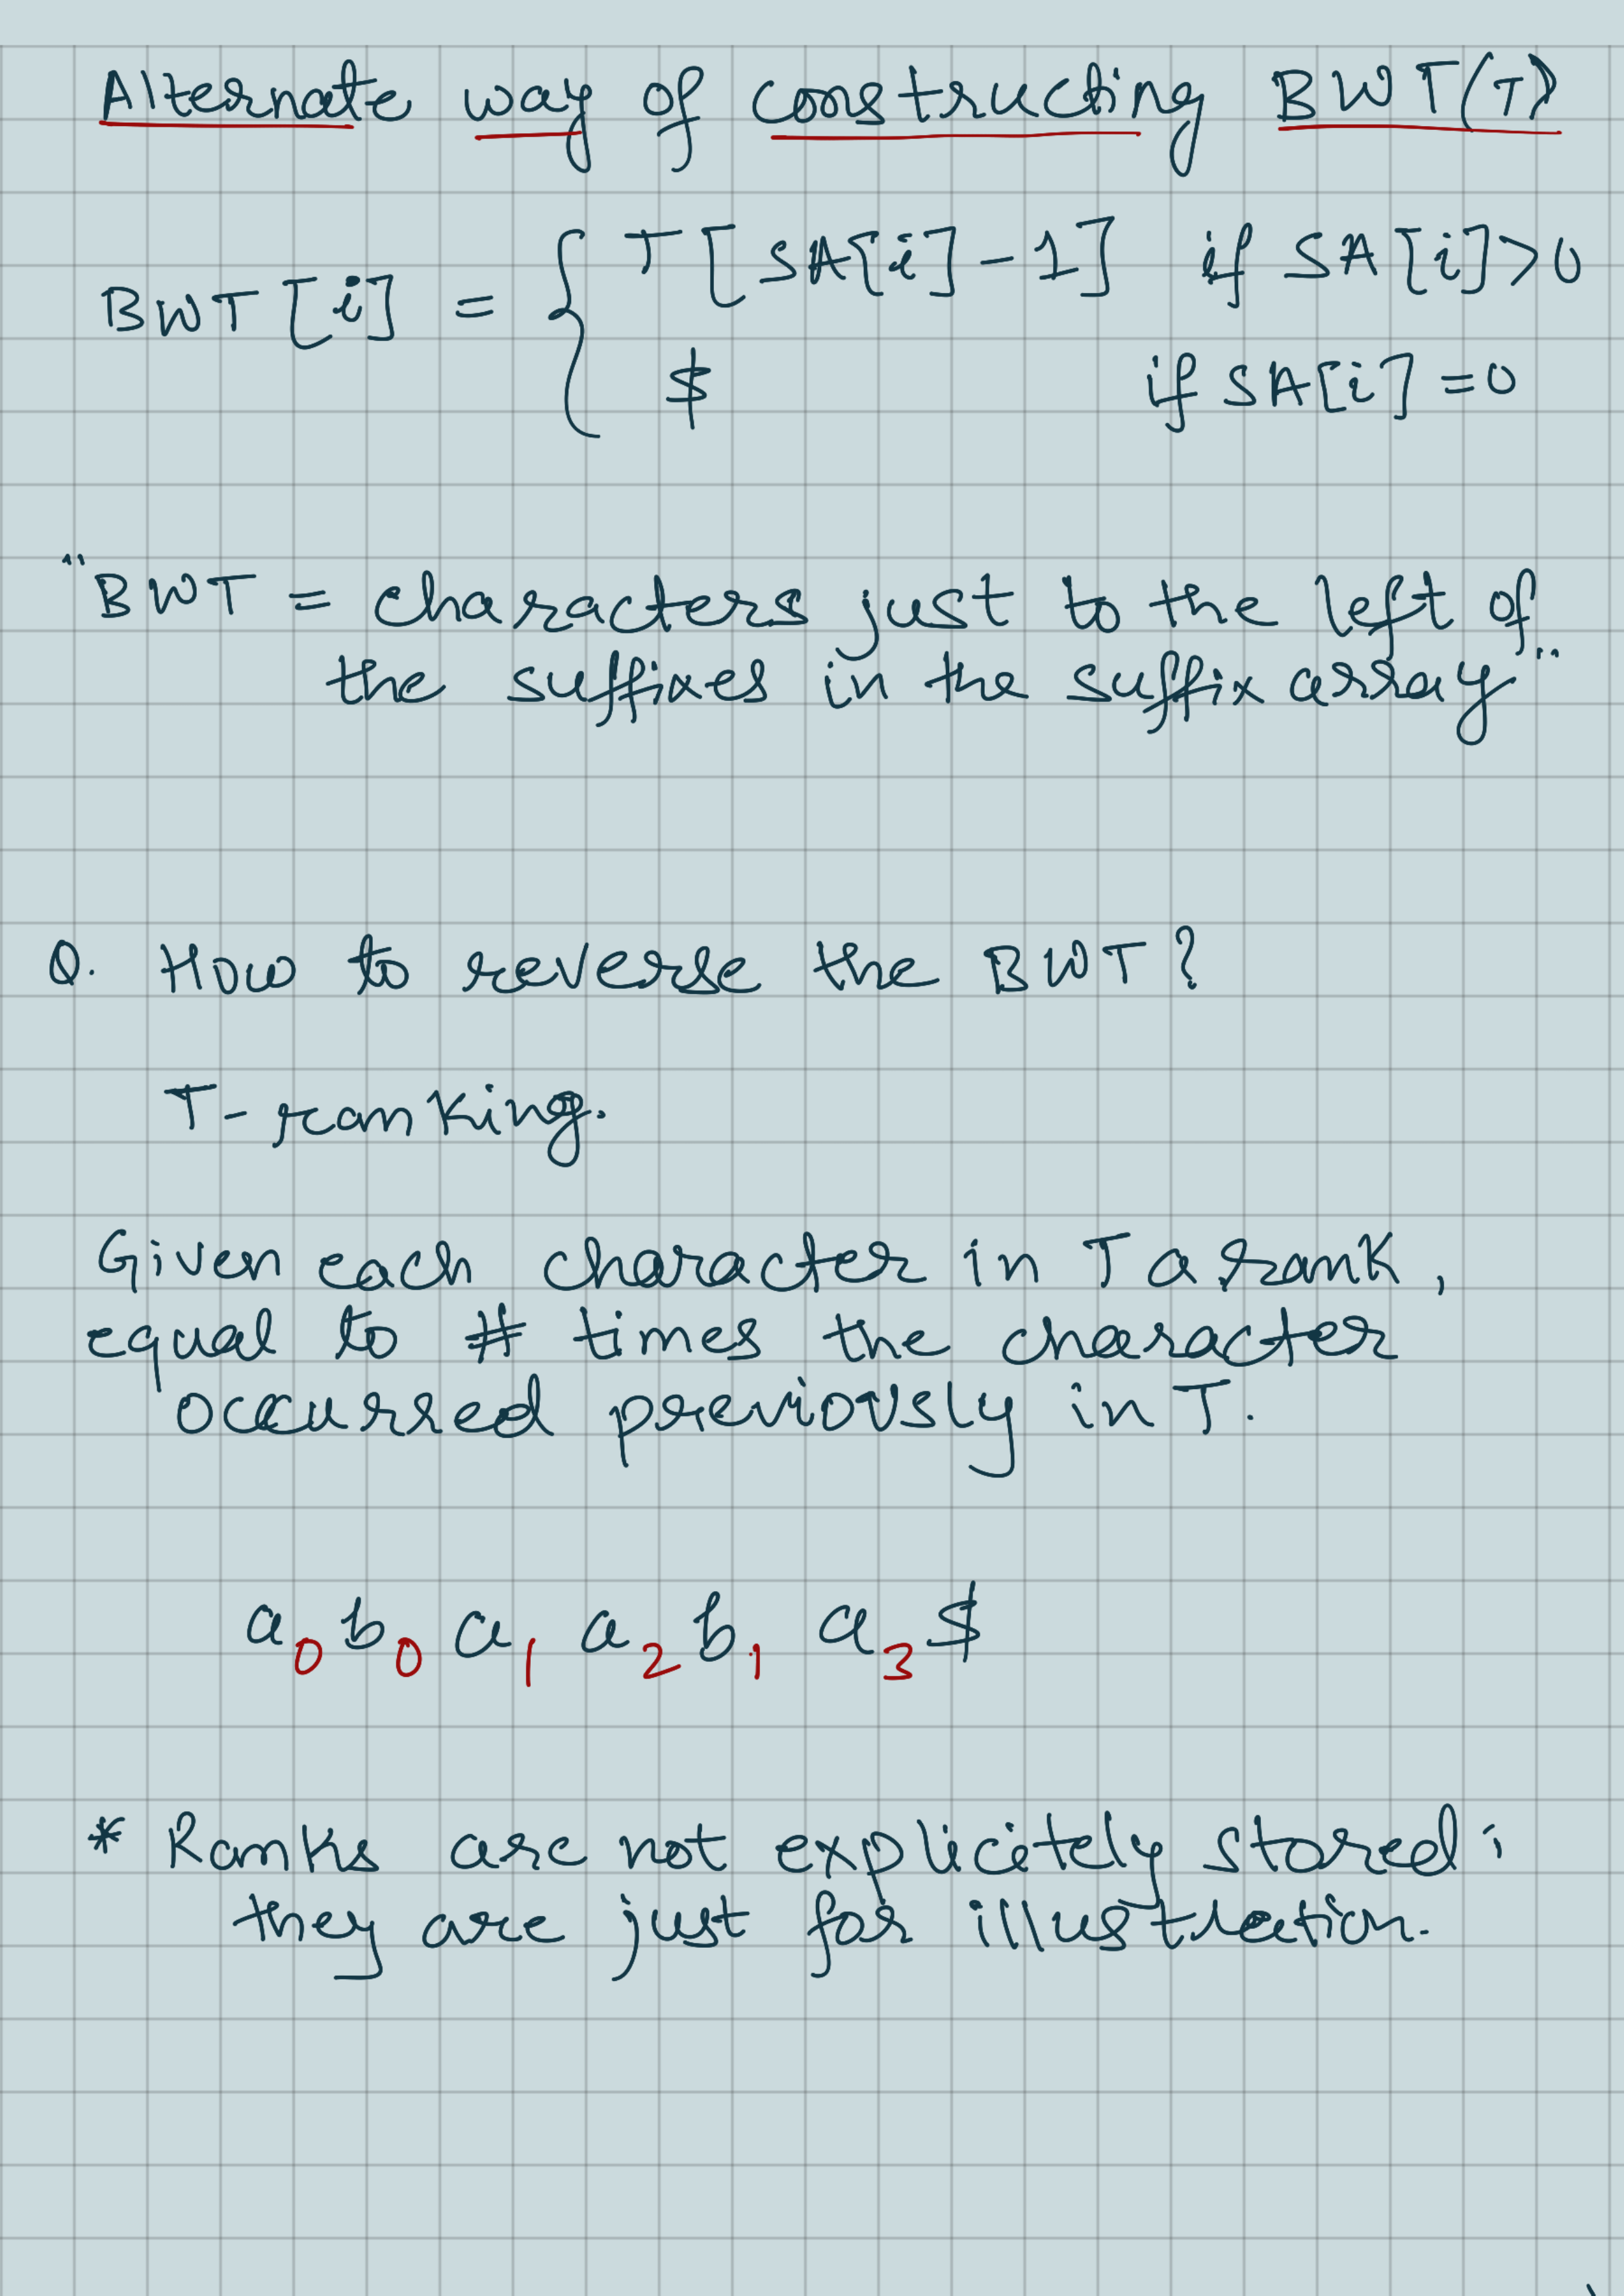 Alternate way of constructing BWT(T)
BWT[i] = { T[SA[i]-1] if SA[i]>0
$ if SA[i]=0
"BWT = characters just to the left of
the suffixes in the suffix array"
Q. How to reverse the BWT?
T-ranking.
Given each character in T a rank,
equal to # times the character
occurred previously in T.
a₀ b₀ a₁ a₂ b₁ a₃ $
* Ranks are not explicitely stored;
they are just for illustration.